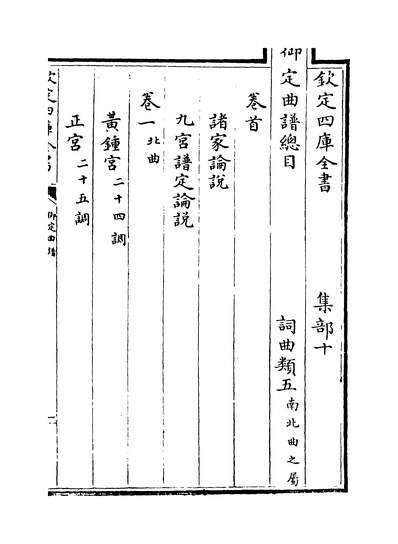 欽定四庫全書 集部十
御定曲譜總目 詞曲類五 南北曲之屬
卷首
諸家論說
九宮譜定論說
卷一 北曲
黃鍾宮 二十四調
正宮 二十五調
欽定四庫全書 御定曲譜 一